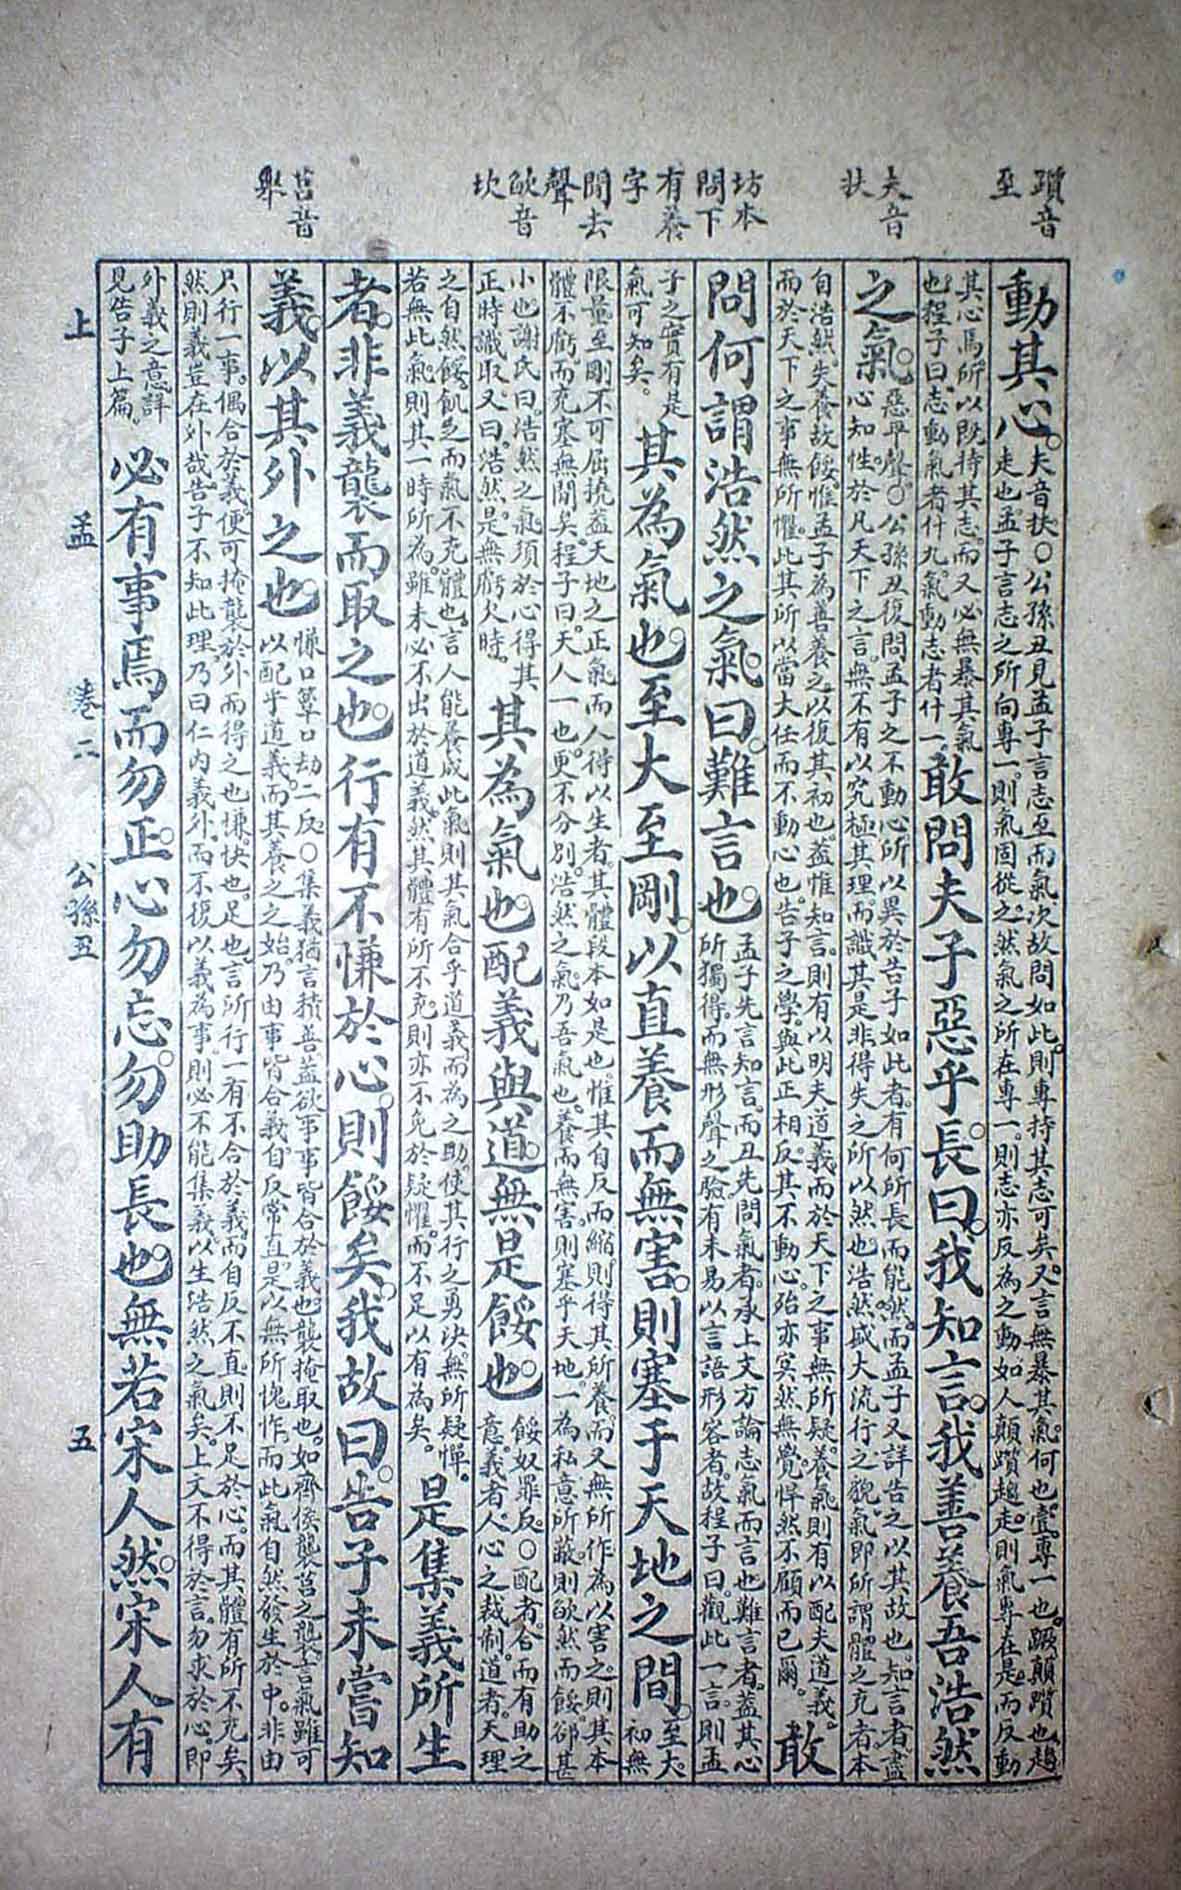 躓音至
夫音扶
坊本問下有養字
間去聲
欿音坎
莒音舉
動其心。
夫音扶○公孫丑見孟子言志至而氣次故問如此則專持其志可矣又言無暴其氣何也壹專一也蹶顛躓也趨
走也孟子言志之所向專一則氣固從之然氣之所在專一則志亦反為之動如人顛躓趨走則氣專在是而反動
其心焉所以既持其志而又必無暴其氣
也程子曰志動氣者什九氣動志者什一
敢問夫子惡乎長。曰。我知言。我善養吾浩然
之氣。
惡平聲○公孫丑復問孟子之不動心所以異於告子如此者有何所長而能然而孟子又詳告之以其故也知言者盡
心知性於凡天下之言無不有以究極其理而識其是非得失之所以然也浩然盛大流行之貌氣即所謂體之充者本
自浩然失養故餒惟孟子為善養之以復其初也蓋惟知言則有以明夫道義而於天下之事無所疑養氣則有以配夫道義
而於天下之事無所懼此其所以當大任而不動心也告子之學與此正相反其不動心殆亦冥然無覺悍然不顧而已爾
敢
問何謂浩然之氣。曰。難言也。
孟子先言知言而丑先問氣者承上文方論志氣而言也難言者蓋其心
所獨得而無形聲之驗有未易以言語形容者故程子曰觀此一言則孟
子之實有是
氣可知矣
其為氣也。至大至剛。以直養而無害。則塞于天地之間。
至大
初無
限量至剛不可屈撓蓋天地之正氣而人得以生者其體段本如是也惟其自反而縮則得其所養而又無所作為以害之則其本
體不虧而充塞無間矣程子曰天人一也更不分別浩然之氣乃吾氣也養而無害則塞乎天地一為私意所蔽則欿然而餒卻甚
小也謝氏曰浩然之氣須於心得其
正時識取又曰浩然是無虧欠時
其為氣也。配義與道。無是餒也。
餒奴罪反○配者合而有助之
意義者人心之裁制道者天理
之自然餒飢乏而氣不充體也言人能養成此氣則其氣合乎道義而為之助使其行之勇決無所疑憚
若無此氣則其一時所為雖未必不出於道義然其體有所不充則亦不免於疑懼而不足以有為矣
是集義所生
者。非義襲而取之也。行有不慊於心。則餒矣。我故曰。告子未嘗知
義。以其外之也。
慊口簟口劫二反○集義猶言積善蓋欲事事皆合於義也襲掩取也如齊侯襲莒之襲言氣雖可
以配乎道義而其養之之始乃由事皆合義自反常直是以無所愧怍而此氣自然發生於中非由
只行一事偶合於義便可掩襲於外而得之也慊快也足也言所行一有不合於義而自反不直則不足於心而其體有所不充矣
然則義豈在外哉告子不知此理乃曰仁內義外而不復以義為事則必不能集義以生浩然之氣矣上文不得於言勿求於心即
外義之意詳
見告子上篇
必有事焉而勿正。心勿忘。勿助長也。無若宋人然。宋人有
上 孟 卷二 公孫丑 五